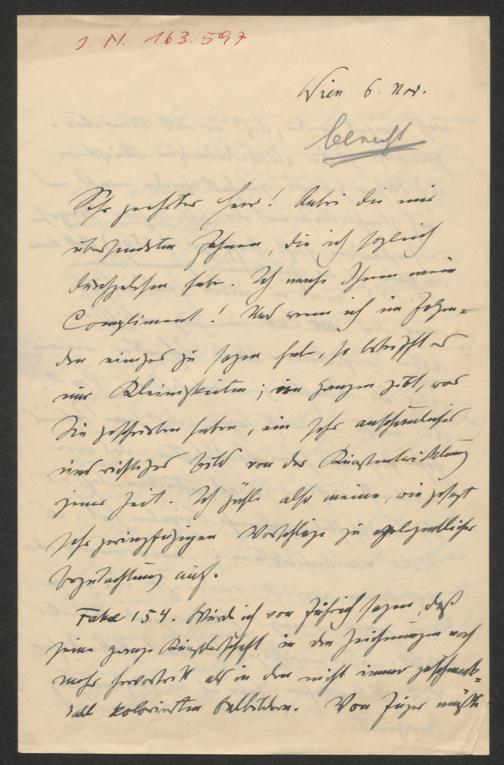 J. N. 163.597
Wien 6. Nov.
Sehr geehrter Herr! Anbei die mir
übersendeten Fahnen, die ich sogleich
durchgelesen habe. Ich mache Ihnen mein
Compliment! Und wenn ich im Folgen-
den einiges zu sagen habe, so betrifft es
nur Kleinigkeiten; im ganzen gibt, was
Sie geschrieben haben, ein sehr anschauliches
und richtiges Bild von der Kunstentwicklung
jener Zeit. Ich zähle also meine, wie gesagt
sehr geringfügigen Vorschläge zu gelegentlicher
Begutachtung auf.
Fahne 154. Würde ich von Führich sagen, daß
seine ganze Künstlerschaft in den Zeichnungen noch
mehr hervortritt als in den nicht immer geschmack-
voll kolorierten Ölbildern. Von